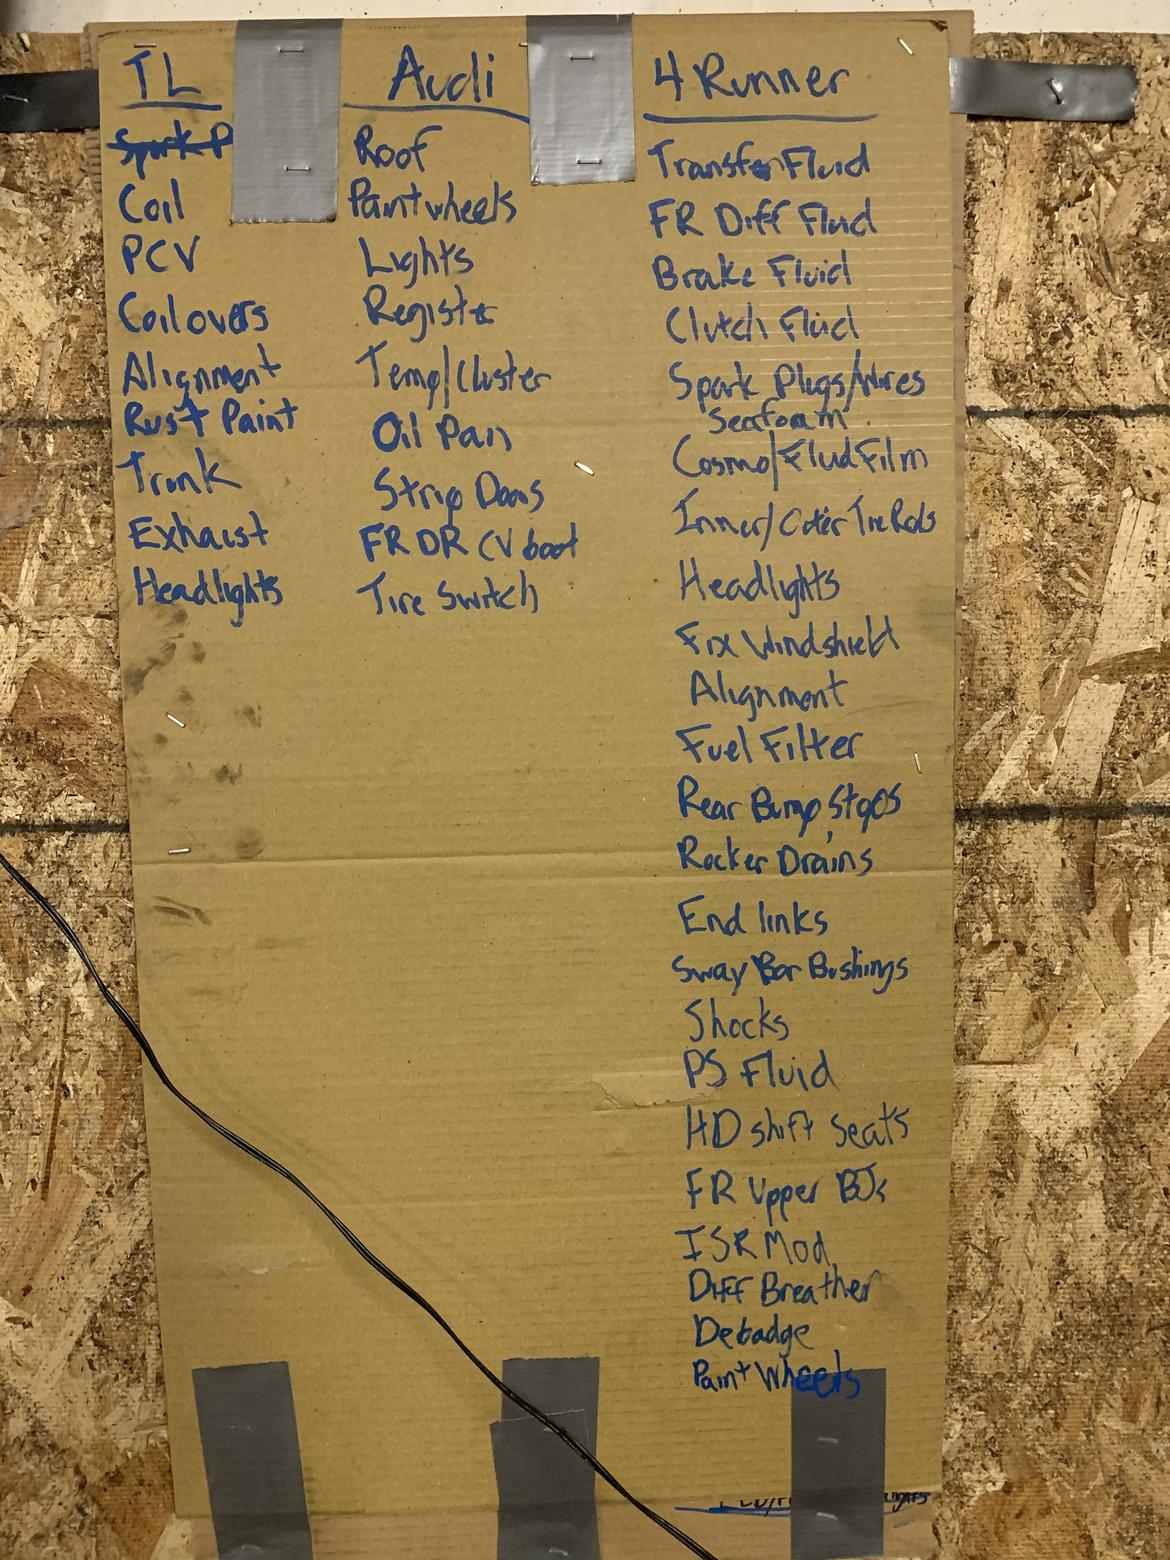 TL
Spark P
Coil
PCV
Coilovers
Alignment
Rust Paint
Trunk
Exhaust
Headlights
Audi
Roof
Paint wheels
Lights
Register
Temp/Cluster
Oil Pan
Strip Doors
FR DR CV boot
Tire Switch
4 Runner
Transfer Fluid
FR Diff Fluid
Brake Fluid
Clutch Fluid
Spark Plugs/Wires
Seafoam
Cosmo/Fluid Film
Inner/Outer Tie Rods
Headlights
Fix Windshield
Alignment
Fuel Filter
Rear Bump Stops
Rocker Drains
End links
Sway Bar Bushings
Shocks
PS Fluid
HD shift Seats
FR Upper BJs
ISR Mod
Diff Breather
Debadge
Paint Wheels